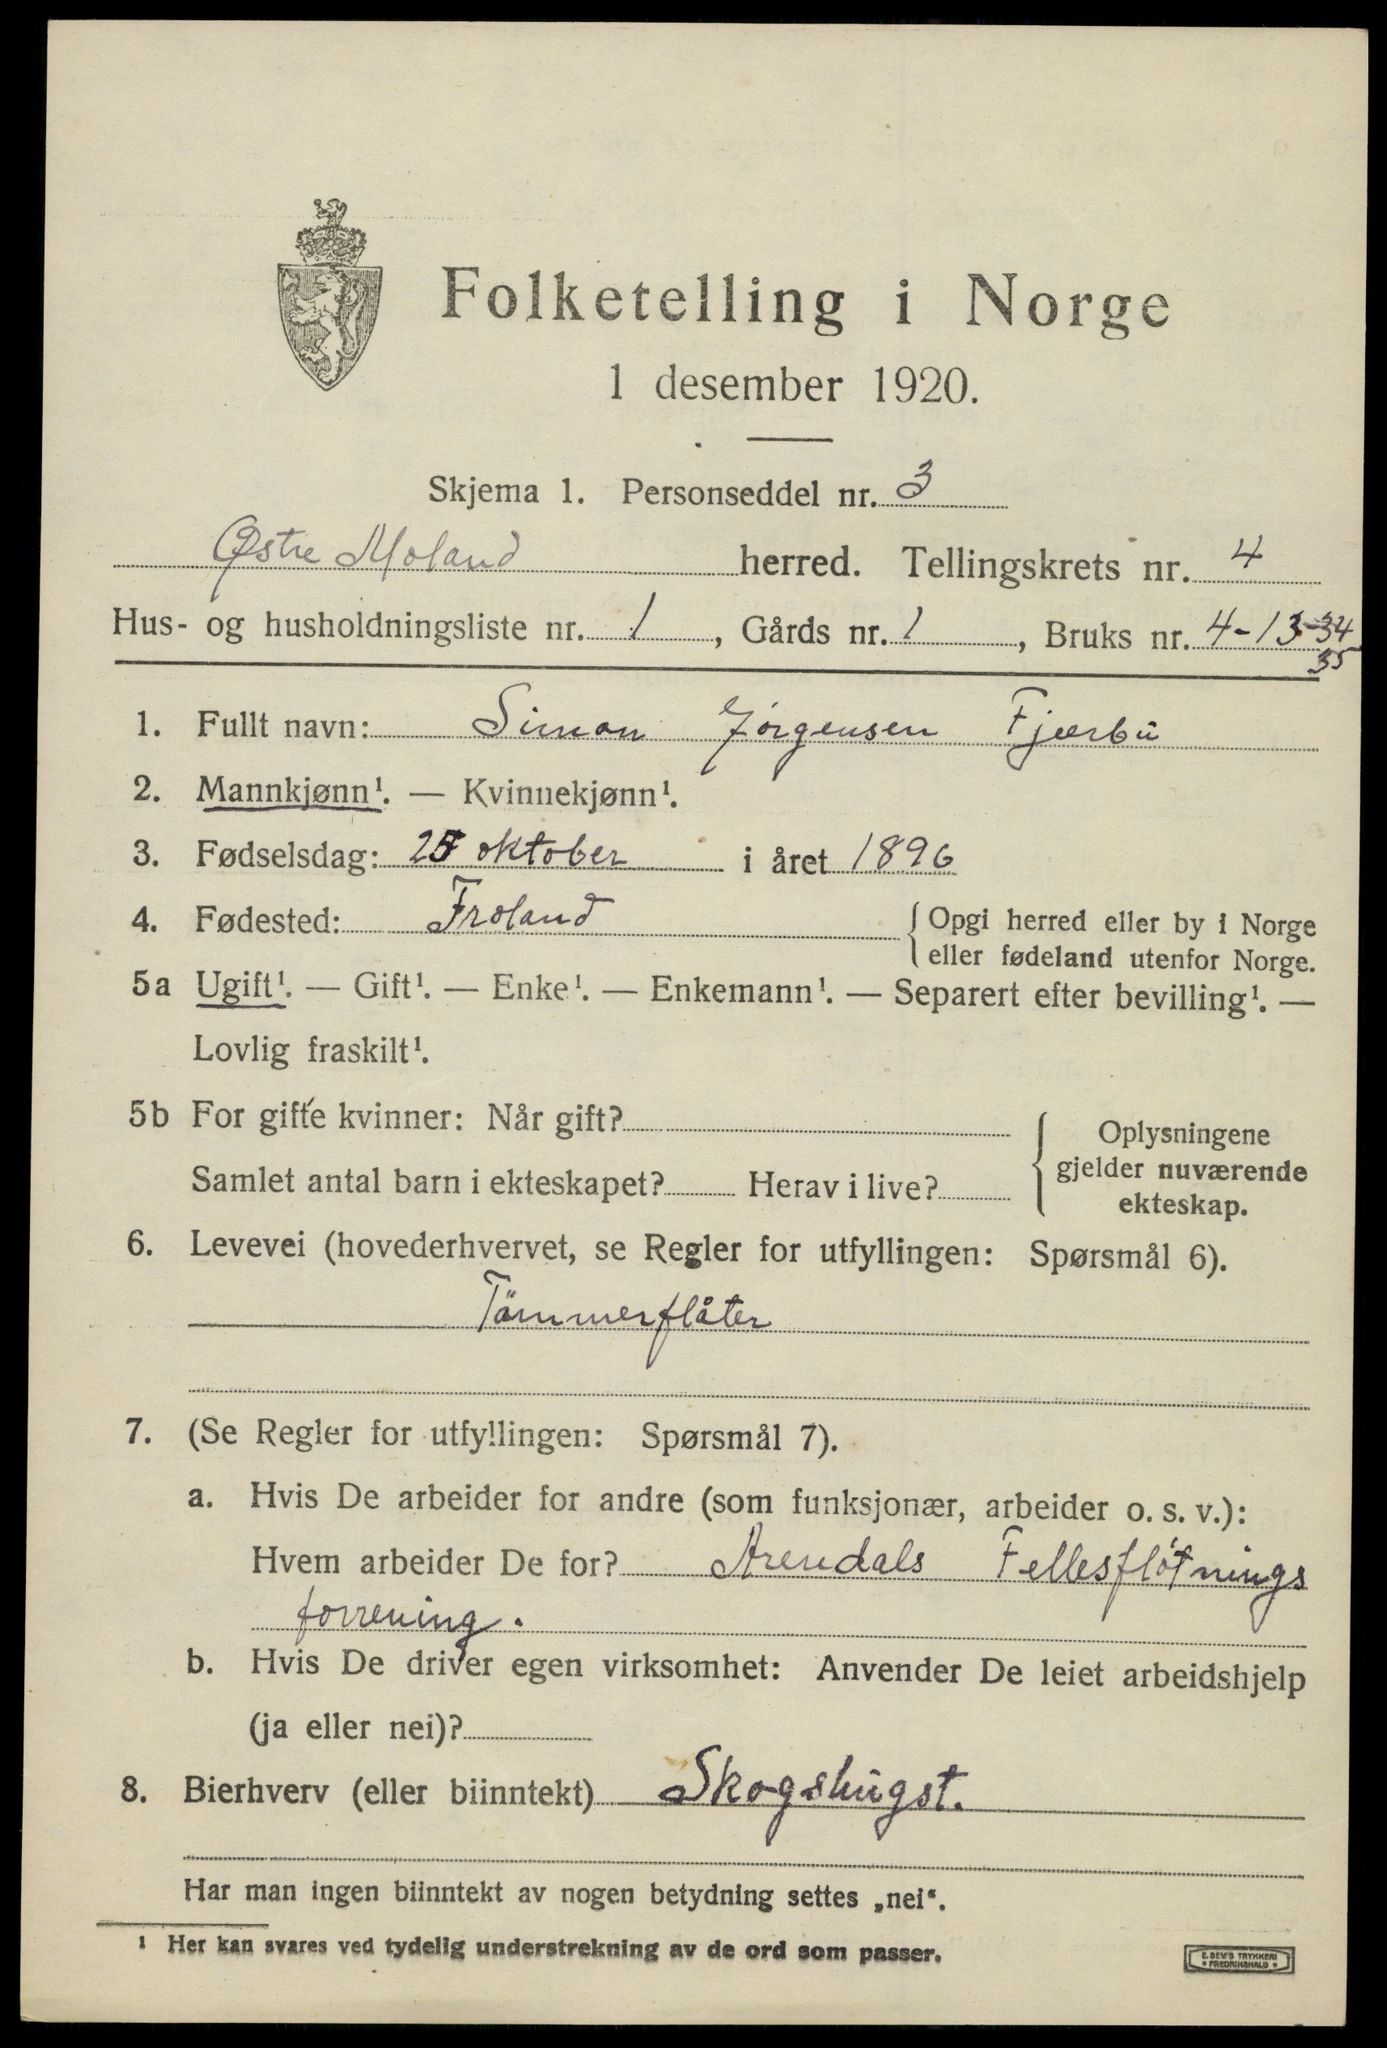 Folketelling i Norge
1 desember 1920.
Skjema 1. Personseddel nr. 3
Østre Moland herred. Tellingskrets nr. 4
Hus- og husholdningsliste nr. 1, Gårds nr. 1, Bruks nr. 4-13-34
35
1. Fullt navn: Simon Jørgensen Fjærbu
2. Mannkjønn¹. — Kvinnekjønn¹.
3. Fødselsdag: oktober i året 1896
4. Fødested: Froland { Opgi herred eller by i Norge
eller fødeland utenfor Norge.
5a Ugift¹. — Gift¹. — Enke¹. — Enkemann¹. — Separert efter bevilling¹. —
Lovlig fraskilt¹.
5b For gifte kvinner: Når gift? { Oplysningene
gjelder nuværende
Samlet antal barn i ekteskapet? Herav i live?
ekteskap.
6. Levevei (hovederhvervet, se Regler for utfyllingen: Spørsmål 6).
Tömmerflåter
7. (Se Regler for utfyllingen: Spørsmål 7).
a. Hvis De arbeider for andre (som funksjonær, arbeider o. s. v.):
Hvem arbeider De for? Arendals Fellesfløtnings
forrening.
b. Hvis De driver egen virksomhet: Anvender De leiet arbeidshjelp
(ja eller nei)?
8. Bierhverv (eller biinntekt) Skogshugst.
Har man ingen biinntekt av nogen betydning settes „nei“.
¹ Her kan svares ved tydelig understrekning av de ord som passer.
E. SEM'S TRYKKERI
• FREDRIKSHALD •